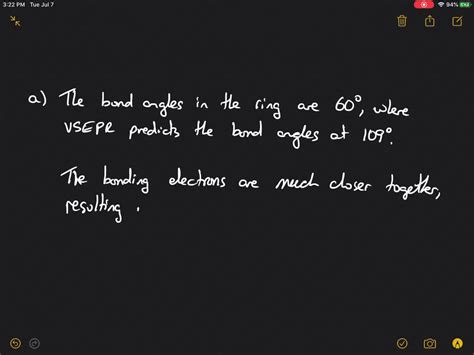 3:22 PM Tue Jul 7
94%
a) The bond angles in the ring are 60°, where
VSEPR predicts the bond angles at 109°.
The bonding electrons are much closer together,
resulting